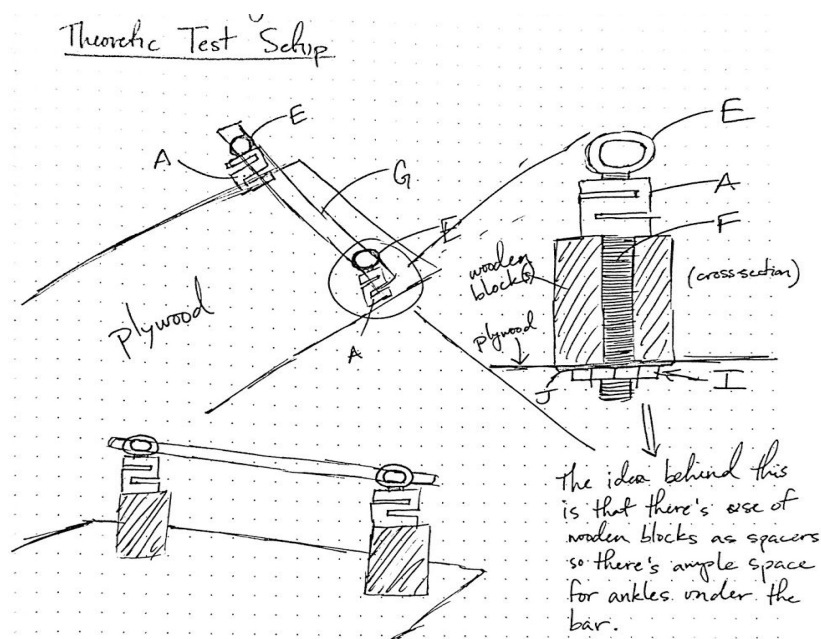 Theoretic Test Setup
E
A
G
E
A
plywood
E
A
F
wooden
blocks
(cross-section)
plywood
J
I
The idea behind this
is that there's use of
wooden blocks as spacers
so there's ample space
for ankles under the
bar.